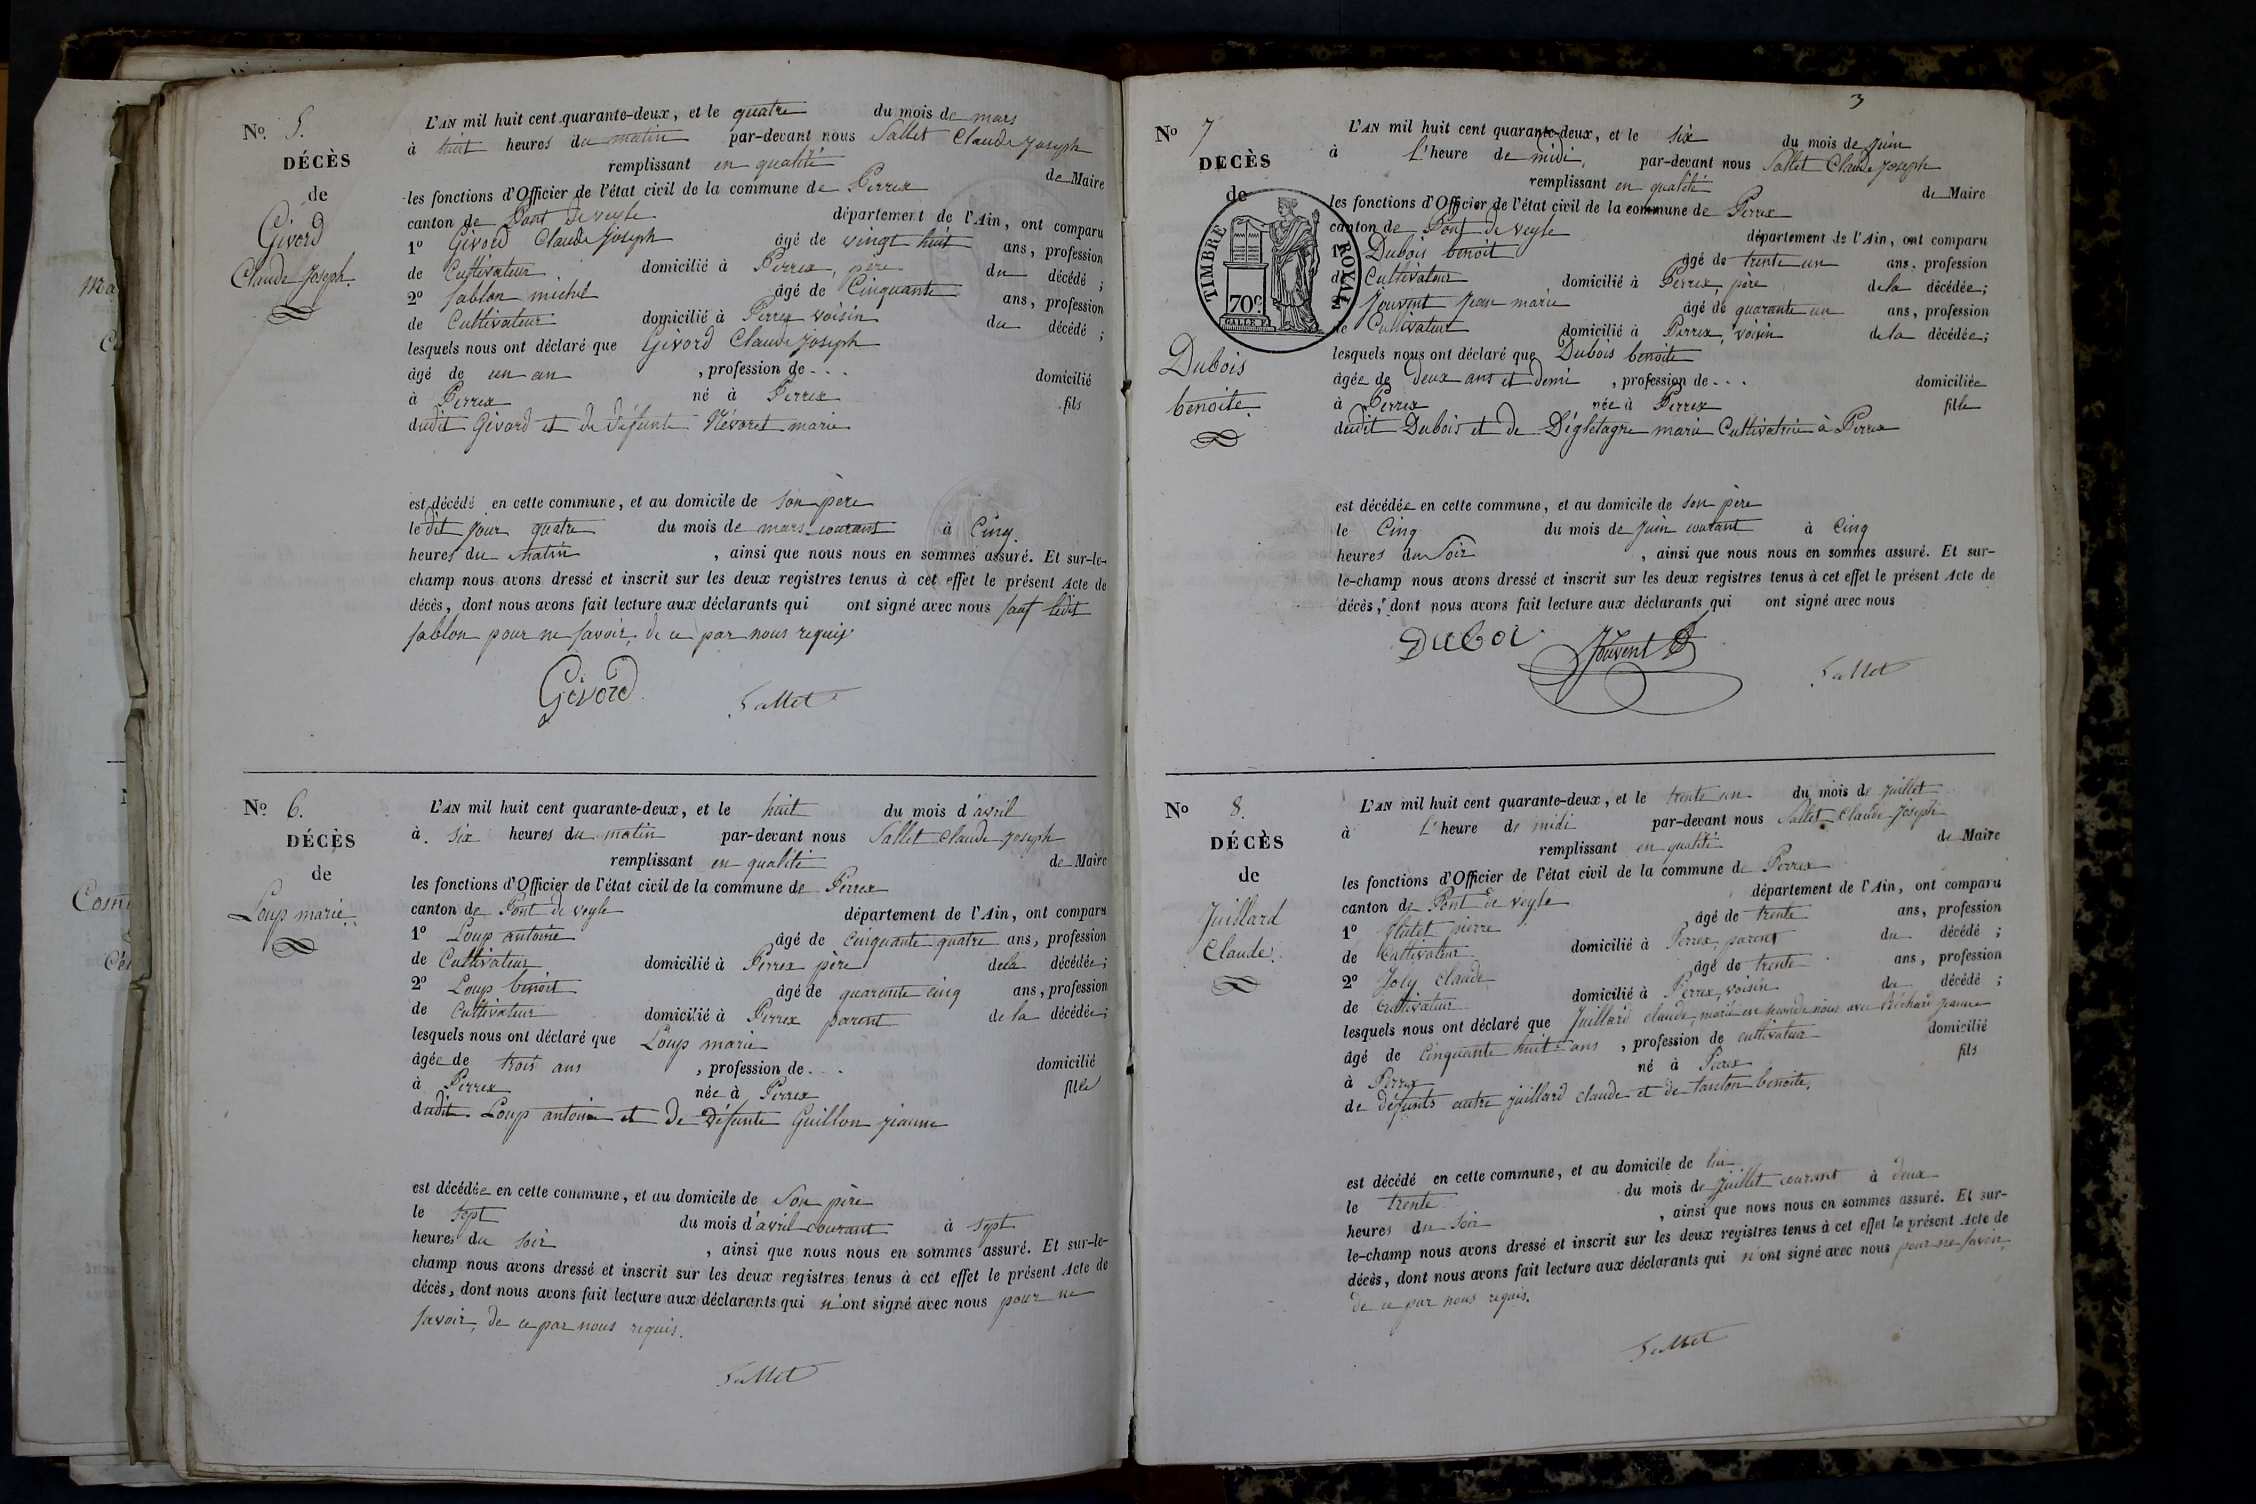 Nº 5.
DÉCÈS
de
Givord
Claude Joseph.
L'AN mil huit cent quarante-deux, et le quatre du mois de mars
à huit heures du matin par-devant nous Sallet Claude Joseph
remplissant en qualité de Maire
les fonctions d'Officier de l'état civil de la commune de Perrex
canton de Pont de veyle département de l'Ain, ont comparu
1º Givord Claude Joseph âgé de vingt huit ans, profession
de Cultivateur, domicilié à Perrex, père du décédé ;
2º Sablon michel âgé de Cinquante ans, profession
de Cultivateur domicilié à Perrex voisin du décédé ;
lesquels nous ont déclaré que Givord Claude Joseph
âgé de un an , profession de - - - domicilié
à Perrex né à Perrex fils
dudit Givord et de défunte Névoret marie
est décédé en cette commune, et au domicile de son père
le dit jour quatre du mois de mars courant à Cinq
heures du matin , ainsi que nous nous en sommes assuré. Et sur-le-
champ nous avons dressé et inscrit sur les deux registres tenus à cet effet le présent Acte de
décès, dont nous avons fait lecture aux déclarants qui ont signé avec nous sauf ledit
Sablon pour ne savoir, de ce par nous requis
Givord Sallet
Nº 6.
DÉCÈS
de
Loup marie
L'AN mil huit cent quarante-deux, et le huit du mois d'avril
à six heures du matin par-devant nous Sallet Claude Joseph
remplissant en qualité de Maire
les fonctions d'Officier de l'état civil de la commune de Perrex
canton de Pont de veyle département de l'Ain, ont comparu
1º Loup antoine âgé de cinquante quatre ans, profession
de Cultivateur domicilié à Perrex père de la décédée ;
2º Loup benoit âgé de quarante cinq ans, profession
de Cultivateur domicilié à Perrex parent de la décédée ;
lesquels nous ont déclaré que Loup marie
âgée de trois ans , profession de - - - domicilié
à Perrex née à Perrex fille
dudit Loup antoine et de défunte Guillon jeanne
est décédée en cette commune, et au domicile de son père
le sept du mois d'avril courant à sept
heures du soir , ainsi que nous nous en sommes assuré. Et sur-le-
champ nous avons dressé et inscrit sur les deux registres tenus à cet effet le présent Acte de
décès, dont nous avons fait lecture aux déclarants qui n'ont signé avec nous pour ne
savoir, de ce par nous requis.
Sallet
3
Nº 7
DÉCÈS
de
TIMBRE ROYAL
70 c.
Dubois
benoite.
L'AN mil huit cent quarante-deux, et le six du mois de juin
à L'heure de midi, par-devant nous Sallet Claude Joseph
remplissant en qualité de Maire
les fonctions d'Officier de l'état civil de la commune de Perrex
canton de Pont de veyle département de l'Ain, ont comparu
1º Dubois benoit âgé de trente un ans, profession
de Cultivateur domicilié à Perrex, père de la décédée ;
2º Jouvent Jean marie âgé de quarante un ans, profession
de Cultivateur domicilié à Perrex, voisin de la décédée ;
lesquels nous ont déclaré que Dubois benoite
âgée de deux ans et demi , profession de - - - domiciliée
à Perrex née à Perrex fille
dudit Dubois et de Dégletagne marie Cultivatrice à Perrex
est décédée en cette commune, et au domicile de son père
le Cinq du mois de juin courant à cinq
heures du soir , ainsi que nous nous en sommes assuré. Et sur-
le-champ nous avons dressé et inscrit sur les deux registres tenus à cet effet le présent Acte de
décès, dont nous avons fait lecture aux déclarants qui ont signé avec nous
Duboi Jouvent Sallet
Nº 8.
DÉCÈS
de
Juillard
Claude.
L'AN mil huit cent quarante-deux, et le trente un du mois de juillet
à L'heure de midi par-devant nous Sallet Claude Joseph
remplissant en qualité de Maire
les fonctions d'Officier de l'état civil de la commune de Perrex
canton de Pont de veyle département de l'Ain, ont comparu
1º pierre âgé de trente ans, profession
de Cultivateur domicilié à Perrex, parent du décédé ;
2º Joly claude âgé de trente ans, profession
de Cultivateur domicilié à Perrex, voisin du décédé ;
lesquels nous ont déclaré que Juillard claude, marié en seconde noces avec jeanne
âgé de Cinquante huit ans , profession de cultivateur domicilié
à Perrex né à Perrex fils
de défunts autre juillard claude et de tanton benoite,
est décédé en cette commune, et au domicile de lui
le trente du mois de juillet courant à deux
heures du soir , ainsi que nous nous en sommes assuré. Et sur-
le-champ nous avons dressé et inscrit sur les deux registres tenus à cet effet le présent Acte de
décès, dont nous avons fait lecture aux déclarants qui n'ont signé avec nous pour ne savoir,
de ce par nous requis.
Sallet